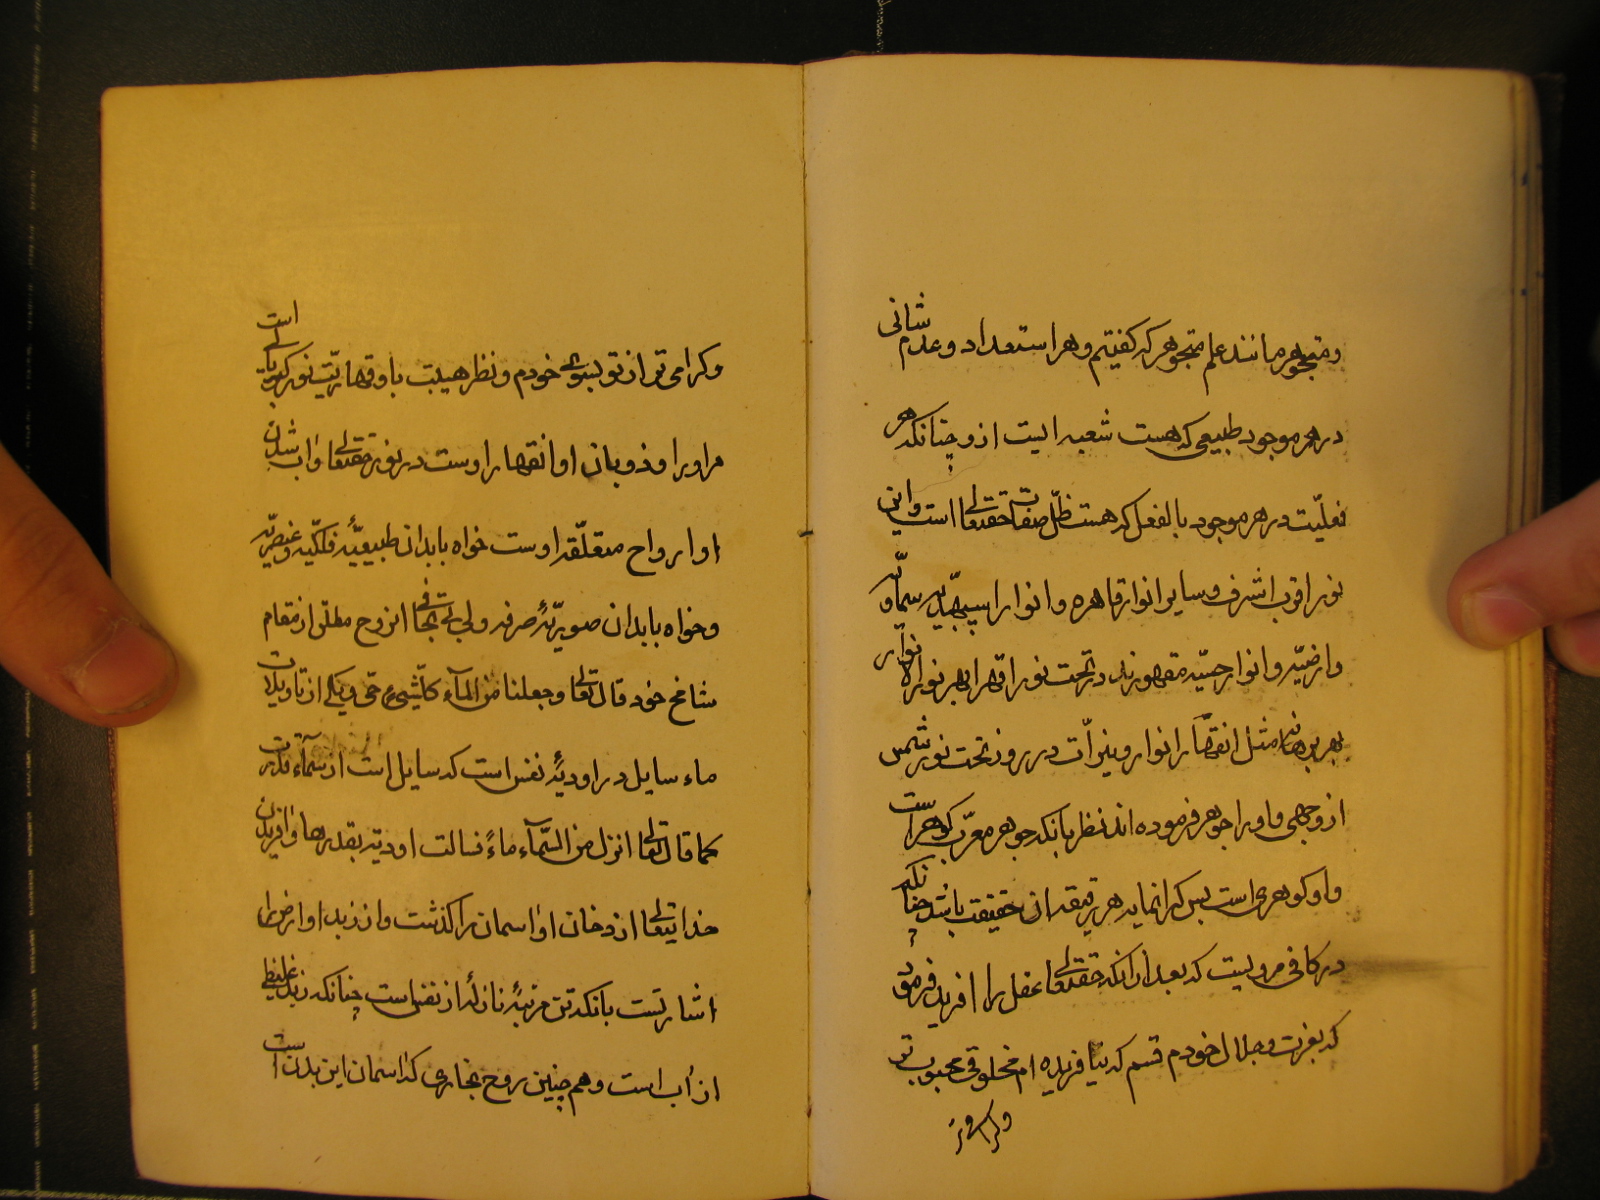 ومتجوهر مانند علم متجوهر که کفتیم وهر استعداد وعدم شانی
در هر موجود طبیعی که هست شعبه ایست ازو چنانکه هر
فعلیّت در هر موجود بالفعل که هست ظلّ صفات حقتعالی است واین
نور اقرب اشرف وسایر انوار قاهره وانوار اسپهبدیّه سماویّه
وارضیّه وانوار حسیّه مقهورند در تحت نور اقهر ابهر نور الانوار
بهر برهانه مثل انقهار انوار ونیرات در روز تحت نور شمس
از وجهی واورا جوهر فرموده اند نظر بانکه جوهر معرّب کوهر است
واو کوهری است بس کرانمایه هر رقیقه ان حقیقت باشد چنانکه
در کافی مرویست که بعد ازانکه حقتعالی عقل را افرید فرمود
که بعزت وجلال خودم قسم که نیافریده ام مخلوقی محبوب تو
وکرامی تر
وکرامی تر از تو بسوی خودم ونظر هیبت با وقهاریّت نور کبریائی است
مر اورا وذوبان او انقهار اوست در نور حقتعالی واب شدن
او ارواح متعلّقه اوست خواه بابدان طبیعیّهٔ فلکیّه وعنصریّه
وخواه بابدان صوریّهٔ صرفه ولی بی تجافی انروح مطلق از مقام
شامخ خود قال تعالی وجعلنا من المآء کلّ شیء حی ویکی از تاویلات
ماء سایل در اودیهٔ نفس است که سایل است از سمآء قدرت
کما قال تعالی انزل من السّمآء ماءً فسالت اودیة بقدرها وافریدن
خدایتعالی از دخان او اسمان را کذشت واز زبد او ارض را
اشارتست بانکه تن مرتبهٔ نازلهٔ از نفس است چنانکه زبد غلیظی
از اب است وهم چنین روح بخاری که اسمان این بدن است